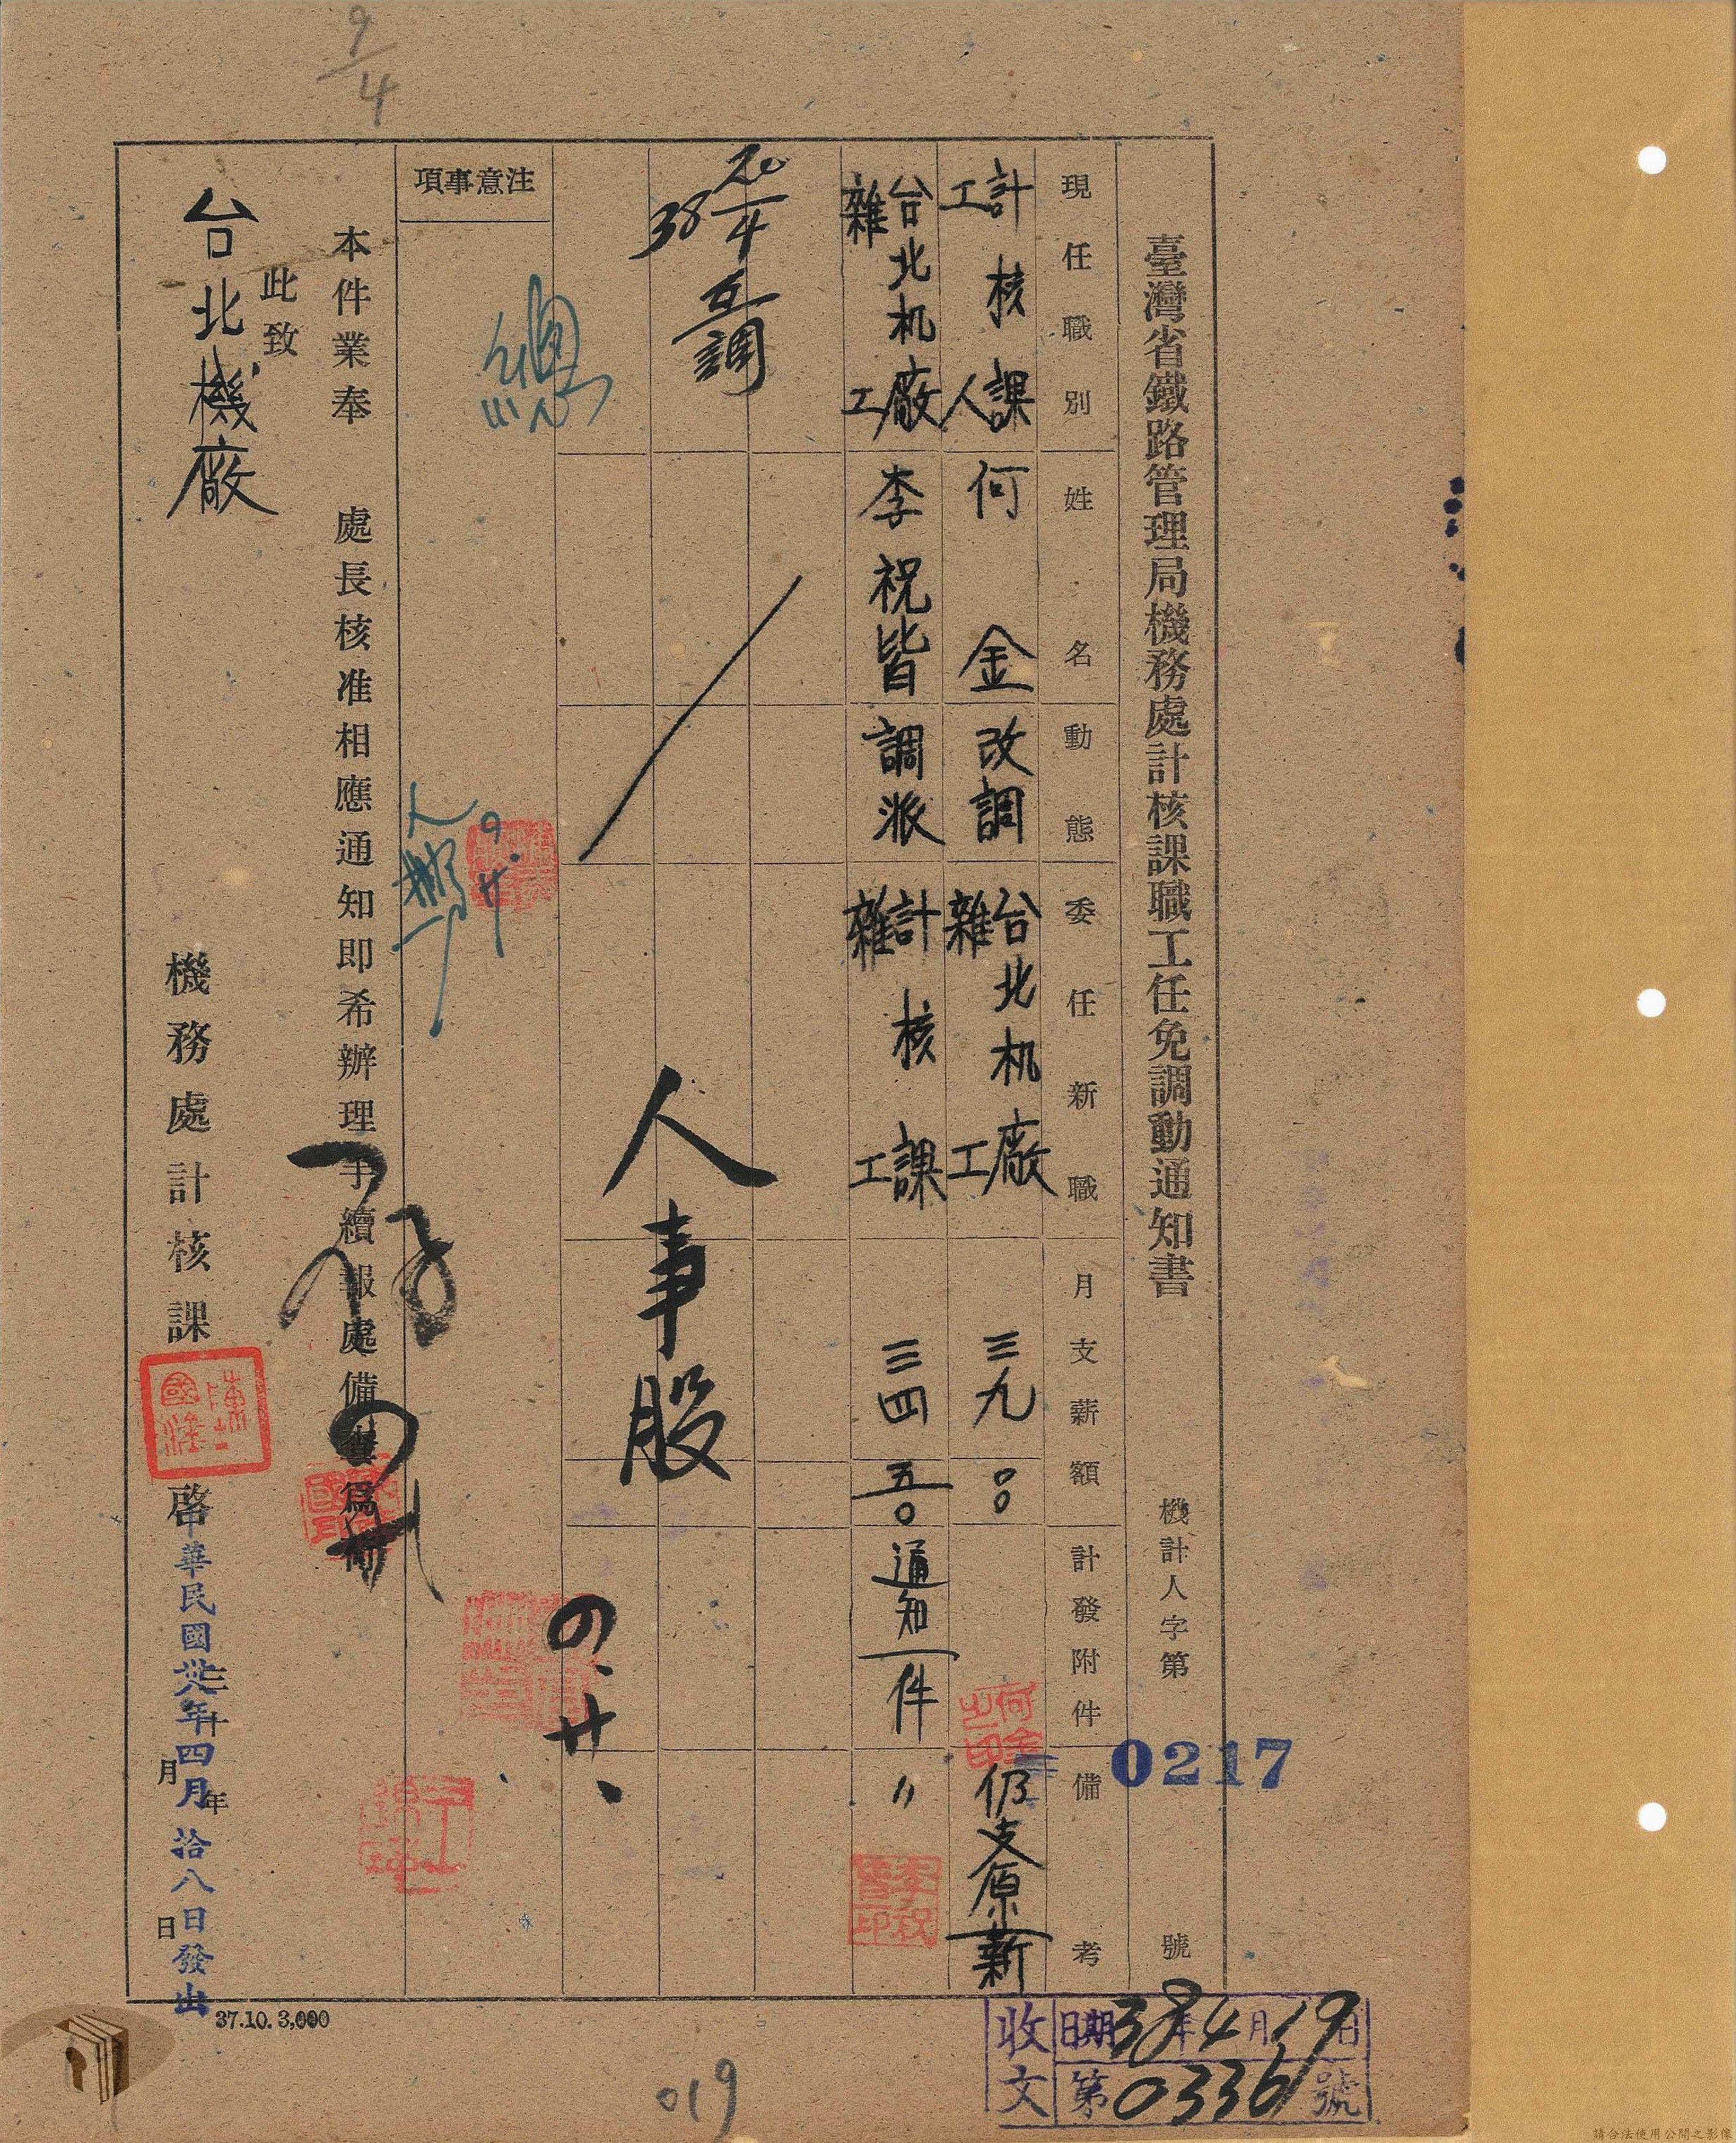 臺灣省鐵路管理局機務處計核課職工任免調動通知書
機計人字第 0217 號
現任職別 姓名 動態 委任新職 月支薪額 計發附件 備考
計核課工人 何金 改調 台北机廠雜工 三九〇〇 仍支原薪
台北机廠雜工 李祝皆 調派 計核課雜工 三四五〇 通知一件 〃
20/4 38 互調
人事股
注意事項
本件業奉 處長核准相應通知即希辦理手續報處備查為荷
此致
台北機廠
機務處計核課 啓
中華民國三十 年 月 日
卅八年四月拾八日發出
37.10. 3,000
收文 日期 38年4月19日
第03361號
9/4
019
何金之印
李祝皆印
請合法使用公開之影像